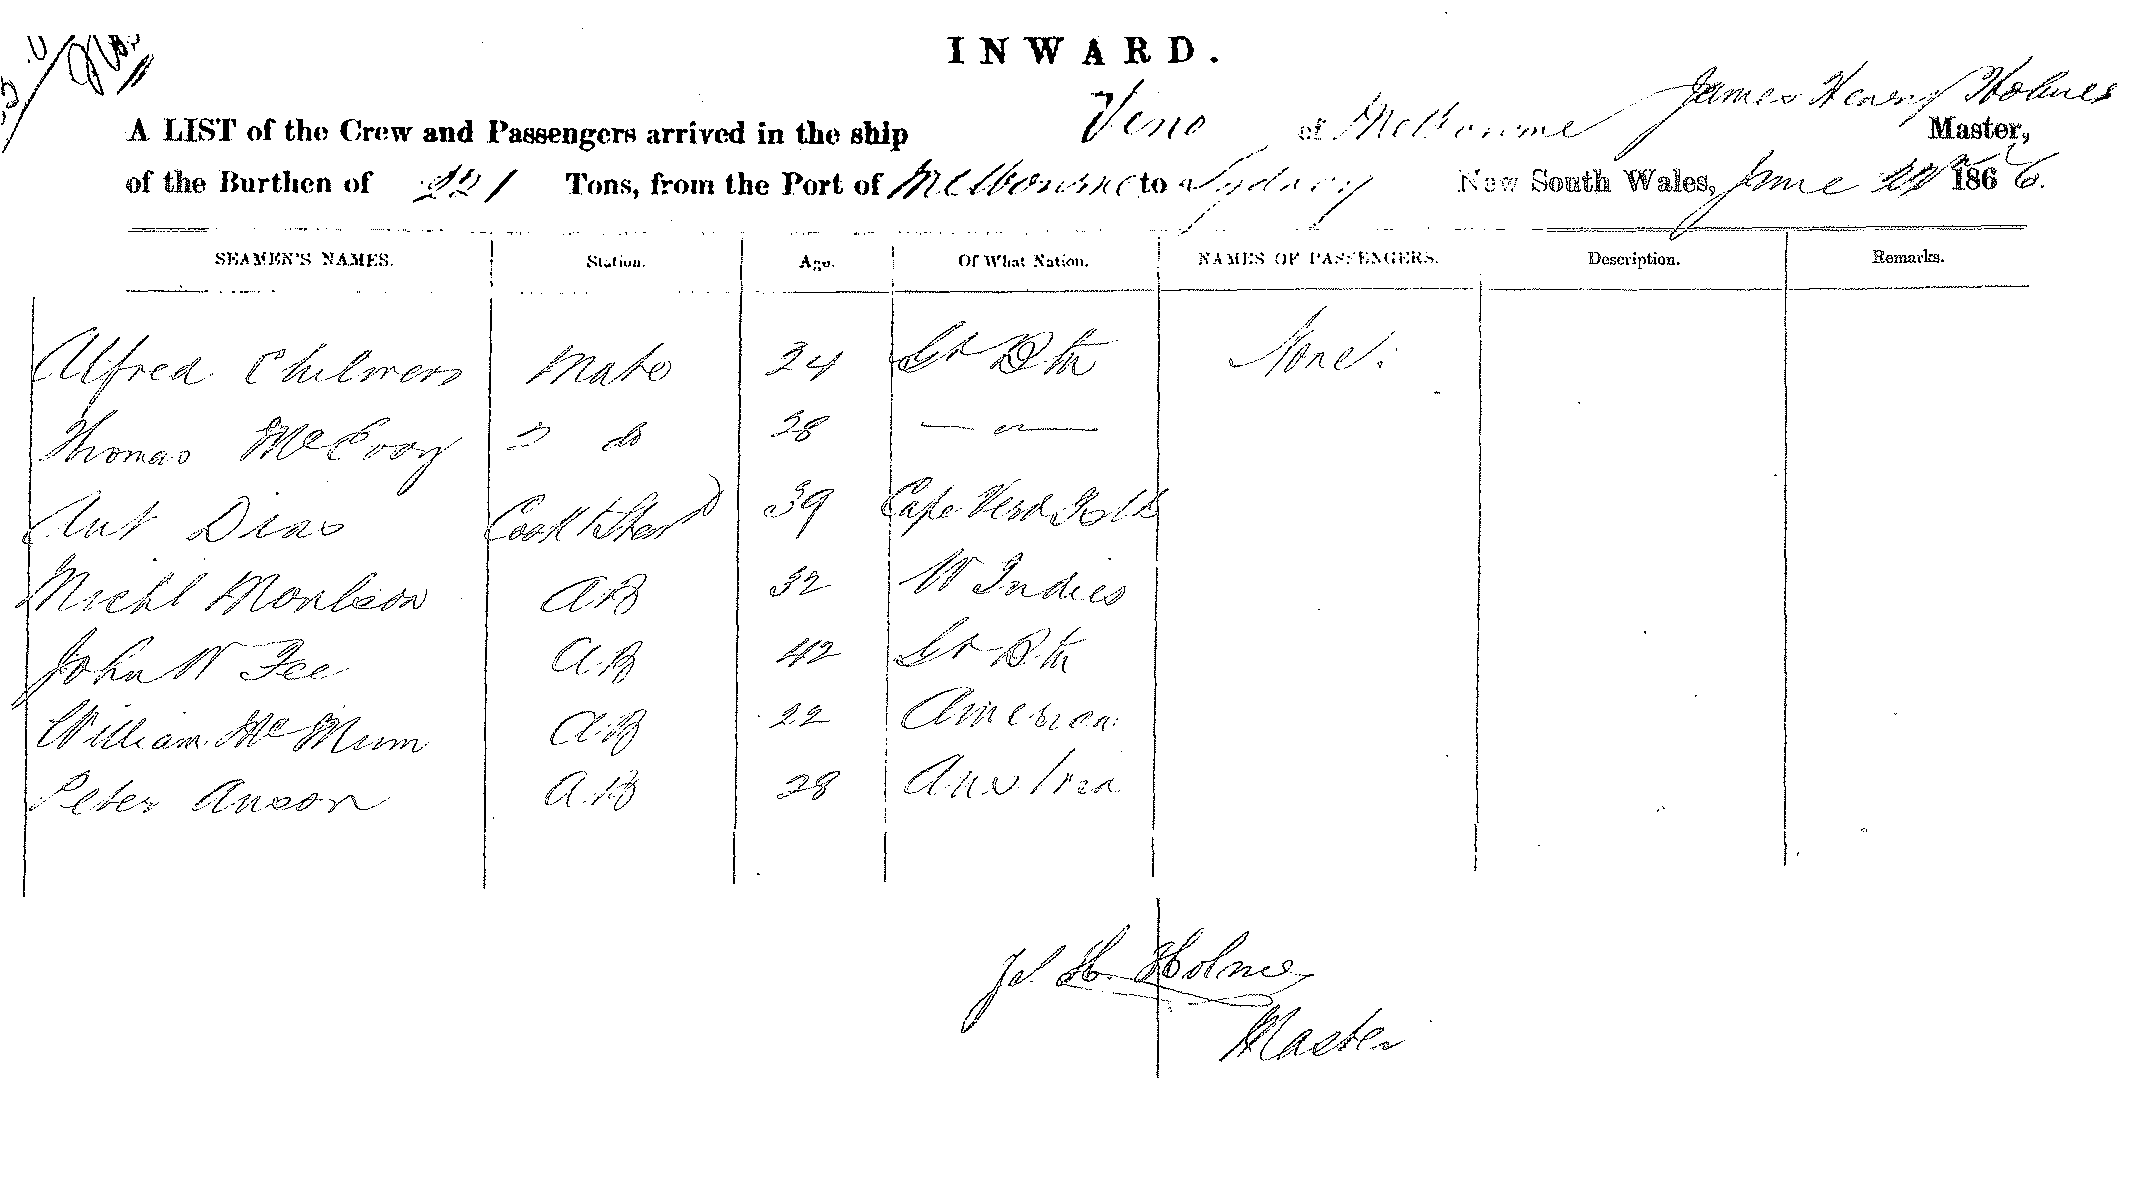 INWARD.
James Henry Holmes
A LIST of the Crew and Passengers arrived in the ship Veno of Melbourne Master,
of the Burthen of 221 Tons, from the Port of Melbourne to Sydney New South Wales, June 1866.
SEAMEN'S NAMES. Station. Age. Of What Nation. NAMES OF PASSENGERS. Description. Remarks.
Alfred Chilvers Mate 24 Gt Btn None.
Thomas McEvoy 2 do 28 — " —
Ant Dias Cook & Stewd 39 Cape Verd Isld
Michl Monlson AB 32 W Indies
John W Fee AB 42 Gt Btn
William McMinn AB 22 American
Peter Anson AB 28 Austria
Js. H. Holmes
Master